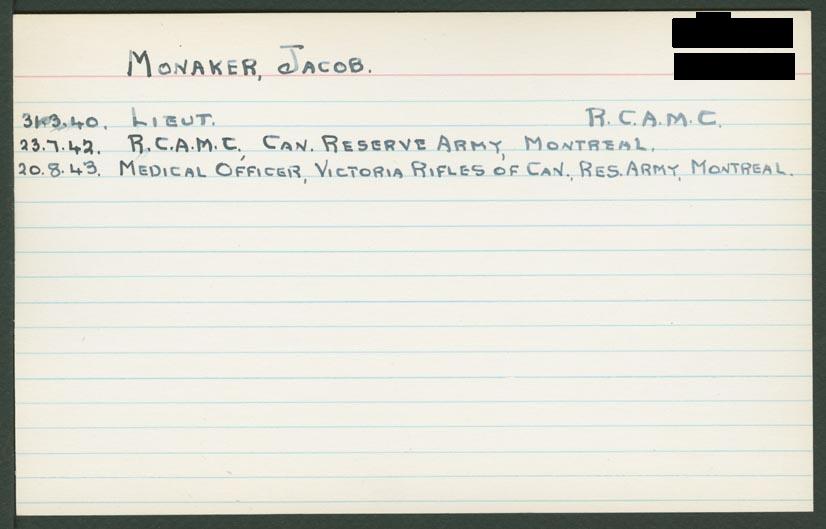 MONAKER, JACOB.
LIEUT. R.C.A.M.C.
23.7.42. R.C.A.M.C., CAN. RESERVE ARMY, MONTREAL.
20.8.43. MEDICAL OFFICER, VICTORIA RIFLES OF CAN., RES. ARMY, MONTREAL.